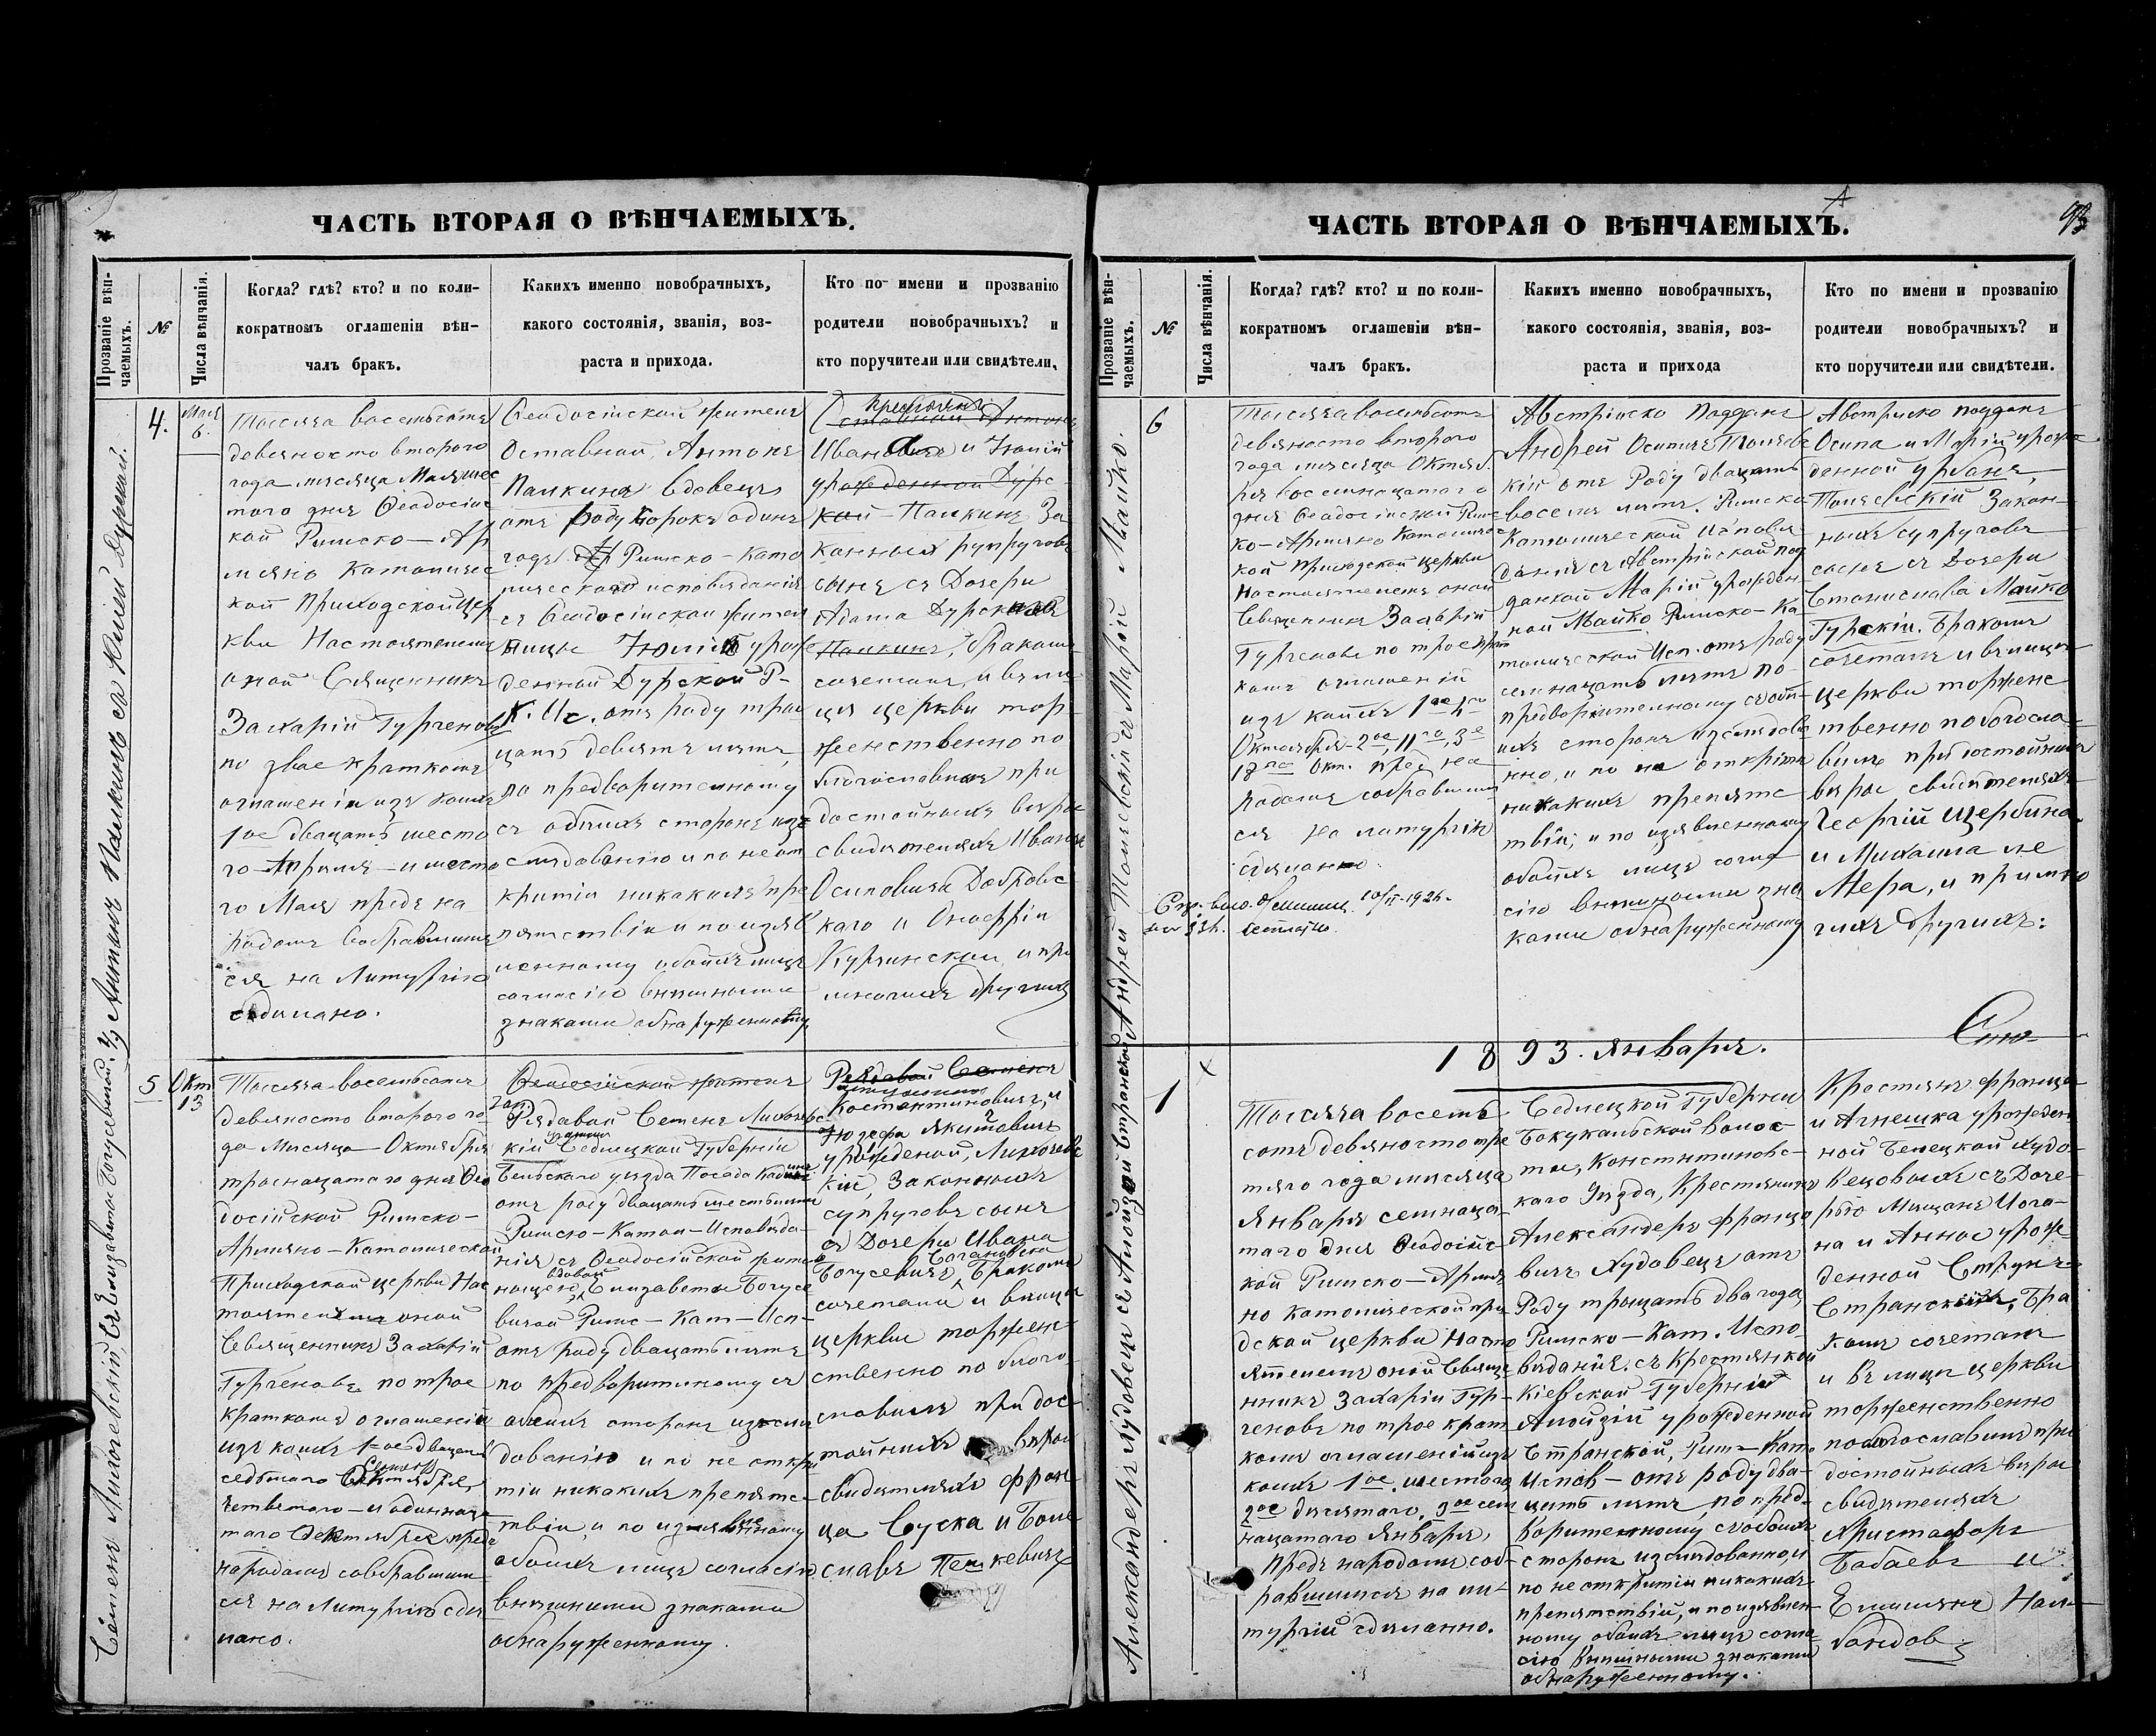 ЧАСТЬ ВТОРАЯ О ВѢНЧАЕМЫХЪ.
Прозваніе вѣн-
чаемыхъ.
№
Числа вѣнчанія.
Когда? гдѣ? кто? и по коли-
кократномъ оглашеніи вѣн-
чалъ бракъ.
Какихъ именно новобрачныхъ,
какого состоянія, званія, воз-
раста и прихода.
Кто по имени и прозванію
родители новобрачныхъ? и
кто поручители или свидѣтели.
4.
Мая
6.
Тысяча восемьсотъ
девяносто второго
года мѣсяца Мая шес
того дня Ѳеодосійс
кой Римско-Ар
мяно Католичес
кой Приходской Цер
кви Настоятелемъ
оной Священникъ
Захарій Турченовъ
по двое кратномъ
оглашеніи изъ коихъ
1ое двацать шесто
го Апрѣля и шесто
го Мая предъ на
родомъ собравшим
ся на Литургію
сдѣлано.
Ѳеодосійской житель
Отставной Антонъ
Палкинъ вдовецъ
отъ роду сорокъ одинъ
годъ Римско-Като
лическаго исповѣданія
съ Ѳеодосійской житель
ницы Юлій урож
денной Дурской Р-
К. Ис. отъ роду трид
цать девять лѣтъ,
по предварительному
съ обоихъ сторонъ изъ
слѣдованію и по неот
крытіи никакихъ пре
пятствіи и по изъяв
ленному обоихъ лицъ
согласію внѣшними
знаками обнаруженному
Ивановъ и Юлій
урожденной Дурс
кой Палкинъ За
конныхъ супруговъ
сынъ съ Дочери
Адама Дурскихъ
Палкинъ, бракомъ
сочеталъ, и въ ли
цѣ церкви тор-
жественно по
благословилъ при
достойныхъ вѣры
свидѣтеляхъ Ивана
Осиповича Добровс
каго и Онофрія
Курчинской и при
многихъ другихъ
Антонъ Палкинъ съ Юліей Дурской.
5
Окт
13
Тысяча восемьсотъ
девяносто второго го
да Мѣсяца Октября
тринацатаго дня Ѳео
досійской Римско-
Армяно-Католической
Приходской церкви Нас
тоятелемъ оной
Священникъ Захарій
Турченовъ по трое
кратномъ оглашеній
изъ коихъ 1-ое двацать
седьмаго Сентября,
четвертаго и одиннаца
таго Октября предъ
народомъ собравшим
ся на Литургію сдѣ
лано.
Ѳеодосійской житель
Рядовой Семенъ Лихачевс
кій Седлецкой Губерніи
Бельскаго уѣзда Посада
отъ роду двацать шесть лѣтъ
Римско-Катол-Исповѣда-
нія съ Ѳеодосійской житель
ницей вдовой Елизаветы Богусе
вичой Римс-Кат-Исп-
отъ роду двацать лѣтъ
по предварительному съ
обоихъ сторонъ изслѣ
дованію и по не откры
тіи никакихъ препятс-
твіи и по изъявленному
обоихъ лицъ согласію
внѣшними знаками
обнаруженному.
Рядовой Семенъ
Константиновичъ, и
Юзефа Якимовичъ
урожденой, Лихачевс
кій, Законныхъ
супруговъ сынъ
съ Дочери Ивана
Богусевичъ Бракомъ
сочетали и въ лицѣ
церкви торжес-
твенно по благо
словилъ при дос-
тойныхъ вѣры
свидѣтеляхъ Фран
ца Суска и Боле
славъ
Семенъ Лихачевскій съ Елизаветой Богусевичой.
ЧАСТЬ ВТОРАЯ О ВѢНЧАЕМЫХЪ.
93
Прозваніе вѣн-
чаемыхъ.
№
Числа вѣнчанія.
Когда? гдѣ? кто? и по коли-
кократномъ оглашеніи вѣн-
чалъ бракъ.
Какихъ именно новобрачныхъ,
какого состоянія, званія, воз-
раста и прихода
Кто по имени и прозванію
родители новобрачныхъ? и
кто поручители или свидѣтели.
6
Тысяча восемьсотъ
девяносто второго
года мѣсяца Октяб
ря восемнацатаго
дня Ѳеодосійской Римс
ко-Армяно Католичес
кой Приходской церкви
Настоятелемъ оной
Священникъ Захарій
Турченовъ по троекрат
номъ оглашеній
изъ коихъ 1ое
Октября 2ое, 11го, 3е
18го Окт. предъ на
родомъ собравшим
ся на литургію
сдѣлано
10/II-1926.
Австрійско Подданъ
Андрей Осиповъ
кій отъ Роду двацать
восемь лѣтъ. Римско
Католической Исповѣ
данія съ Австрійской под
данкой Марій урожден
ной Майко Римско-Ка
толической Исп. отъ роду
семнацать лѣтъ по
предварительному съ обо
ихъ сторонъ изслѣдова
нію, и по не открытіи
никакихъ препятс
твіи, и по изъявленному
обоихъ лицъ согла
сію внѣшними зна
ками обнаруженному
Австрійско поддан
Осипа и Маріи урож
денной Урбанъ,
Закон-
ныхъ супруговъ
сынъ съ Дочери
Станислава Майко
Гурскій. Бракомъ
сочеталъ и въ лицѣ
церкви торжес
твенно поблагосло
вилъ при достойныхъ
вѣры свидѣтеляхъ
Георгій Щербина
и Михаила
Мера, и при мно
гихъ другихъ:
Андрей съ Марій Майко.
1893. Января.
1
Тысяча восемь
сотъ девяносто тре
тяго года мѣсяца
Января семнаца
таго дня Ѳеодосійс
кой Римско-Армя
но католической при
дской церкви Насто
ятелемъ оной Свяще
нникъ Захарій Тур-
ченовъ по трое крат
номъ оглашеній изъ
коихъ 1ое шестаго
2ое десятаго, 3ое сем
нацатаго Января,
Предъ народомъ соб
равшимся на ли-
тургій сдѣланно.
Седлецкой Губерніи
Бокукальской волос-
ти, Константиновс-
каго Уѣзда, Крестянинъ
Александеръ Францо
вичъ Худовецъ отъ
Роду трыцать два года,
Римско-Кат. Испо
вѣданія. съ Крестянкой
Кіевской Губерній
Алойзій урожденной
Странской, Рим-Като
Испов-отъ роду два-
цать лѣтъ, по пред
варительному съ обоихъ
сторонъ изслѣдованію, и
по не открытіи никакихъ
препятствій, и по изъявлен
ному обоихъ лицъ согла
сію внѣшними знаками
обнаруженному.
Крестянъ Франца
и Агнешка урожден
ной Белецкой Худо-
вецовыхъ съ Доче-
рью Мѣщанъ Иога-
на и Анной урож
денной
Странскихъ, Бра
комъ сочеталъ
и въ лицѣ церкви
торжественно
поблагословилъ при
достойныхъ вѣры
свидѣтеляхъ
Христофоръ
Бабаевъ и
Александеръ Худовецъ съ Алойзой Странской